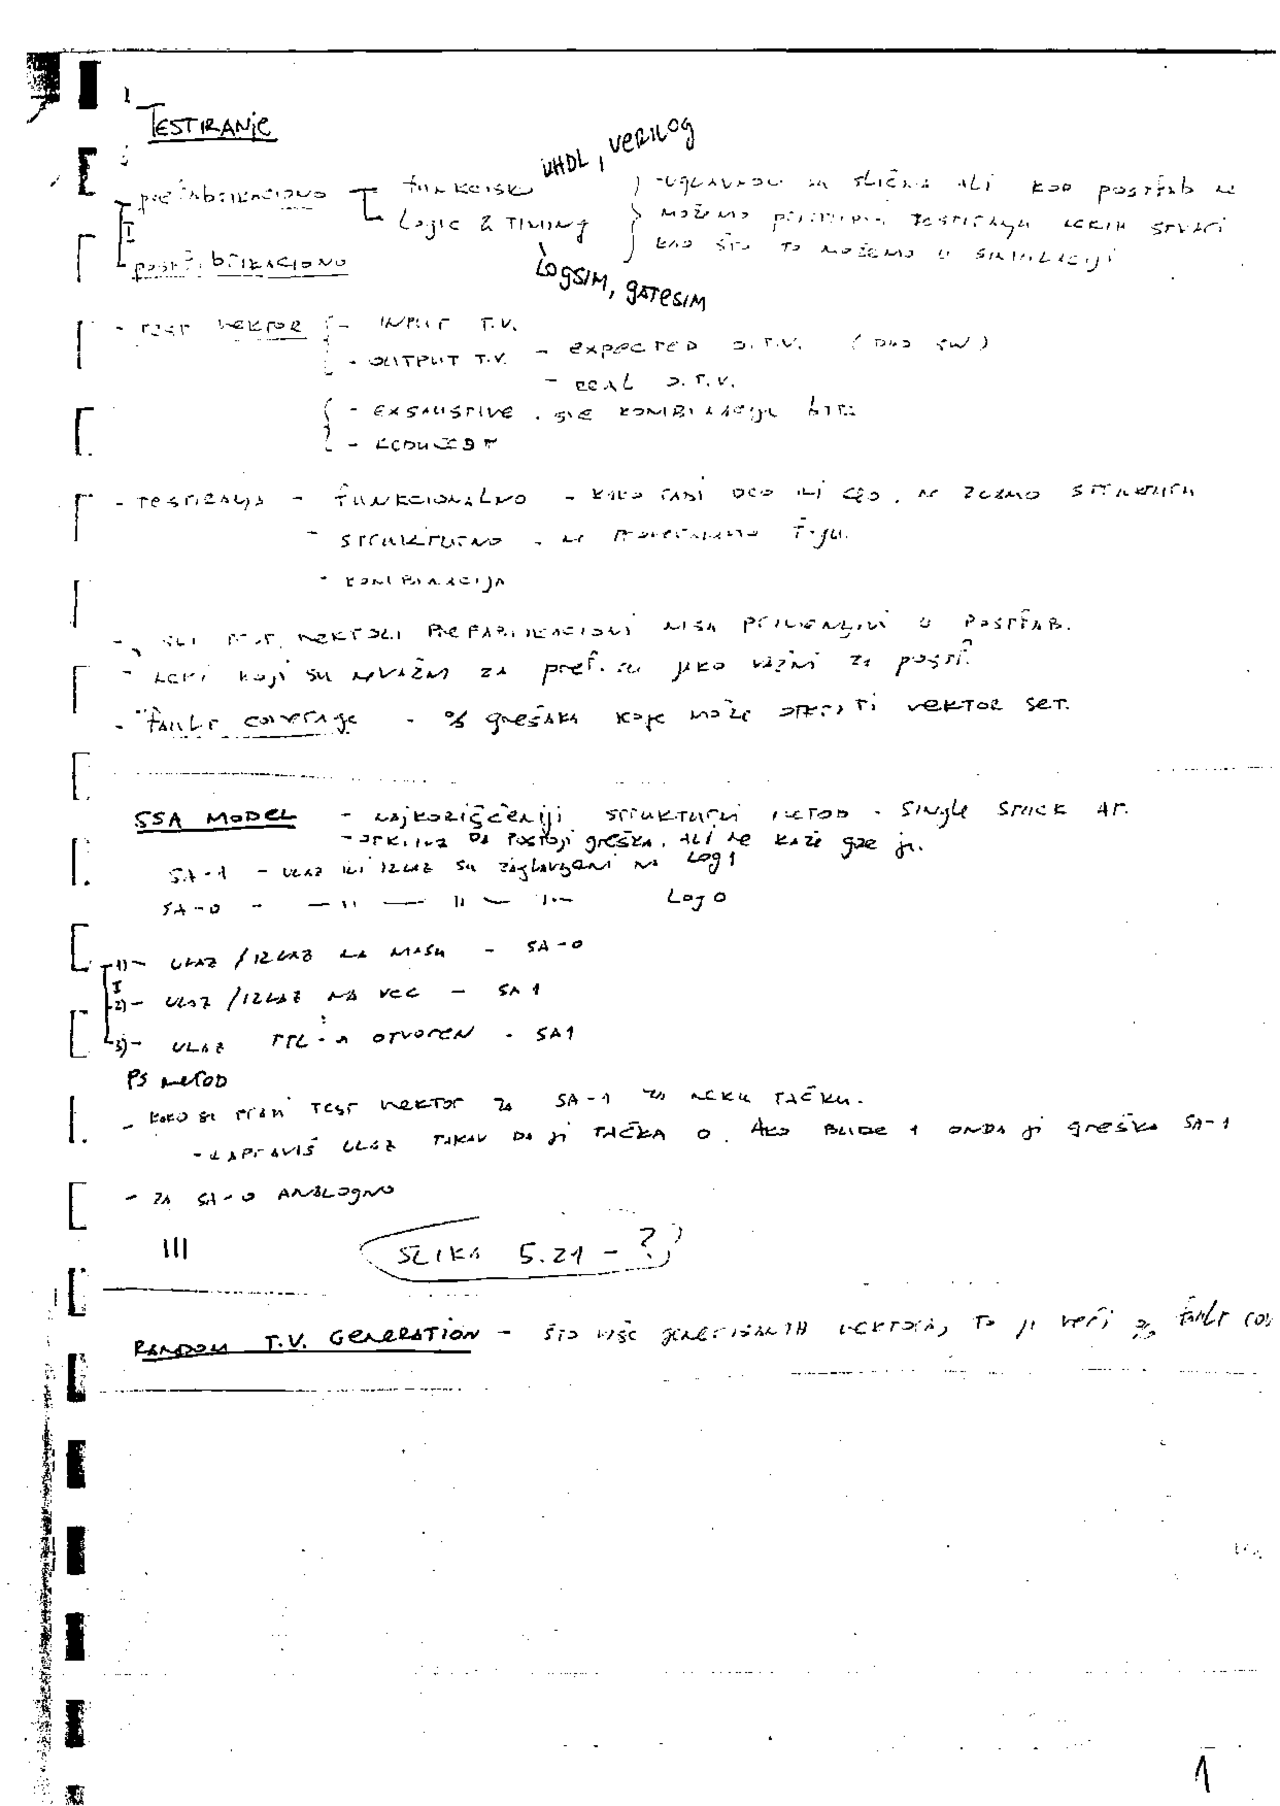 TESTIRANJE
VHDL, VERILOG
prefabrikaciono funkcisko - uglavnom su slična ali kod postfab ne
Logic & Timing možemo testiranju nekih stvari
postfabrikaciono kao što to možemo u simulaciji
LOGSIM, GATESIM
- TEST VEKTOR - INPUT T.V.
- OUTPUT T.V. - EXPECTED O.T.V. ( SW )
- REAL O.T.V.
- EXSAUSTIVE . SVE KOMBINACIJE
-
- TESTIRANJA - FUNKCIONALNO - KAKO RADI DEO ILI CEO, NE STRUKTURU
- STRUKTURNO . NE F-JU.
- KOMBINACIJA
- SVI TEST VEKTORI PREFABRIKACIONI NISU U POSTFAB.
- NEKI KOJI SU NEVAŽNI ZA PREF. SU JAKO VAŽNI ZA POSTF.
- FAULT COVERAGE - % GREŠAKA KOJE MOŽE OTKRITI VEKTOR SET.
SSA MODEL - NAJKORIŠĆENIJI STRUKTURNI METOD - SINGLE STUCK AT.
- DA POSTOJI GREŠKA, ALI NE KAŽE GDE JE.
SA-1 - ULAZ ILI IZLAZ SU ZAGLAVLJENI NA LOG 1
SA-0 - — 11 — 11 — LOG 0
1) - ULAZ / IZLAZ NA MASU - SA-0
2) - ULAZ / IZLAZ NA VCC - SA1
3) - ULAZ TTL-A OTVOREN - SA1
PS METOD
- KAKO SE PRAVI TEST VEKTOR ZA SA-1 ZA NEKU TAČKU.
- NAPRAVIŠ ULAZ TAKAV DA JE TAČKA 0. AKO BUDE 1 ONDA JE GREŠKA SA-1
- ZA SA-0 ANALOGNO
III SLIKA 5.21 - ?
RANDOM T.V. GENERATION - ŠTO VIŠE GENERISANIH VEKTORA, TO JE VEĆI % FAULT COV
1